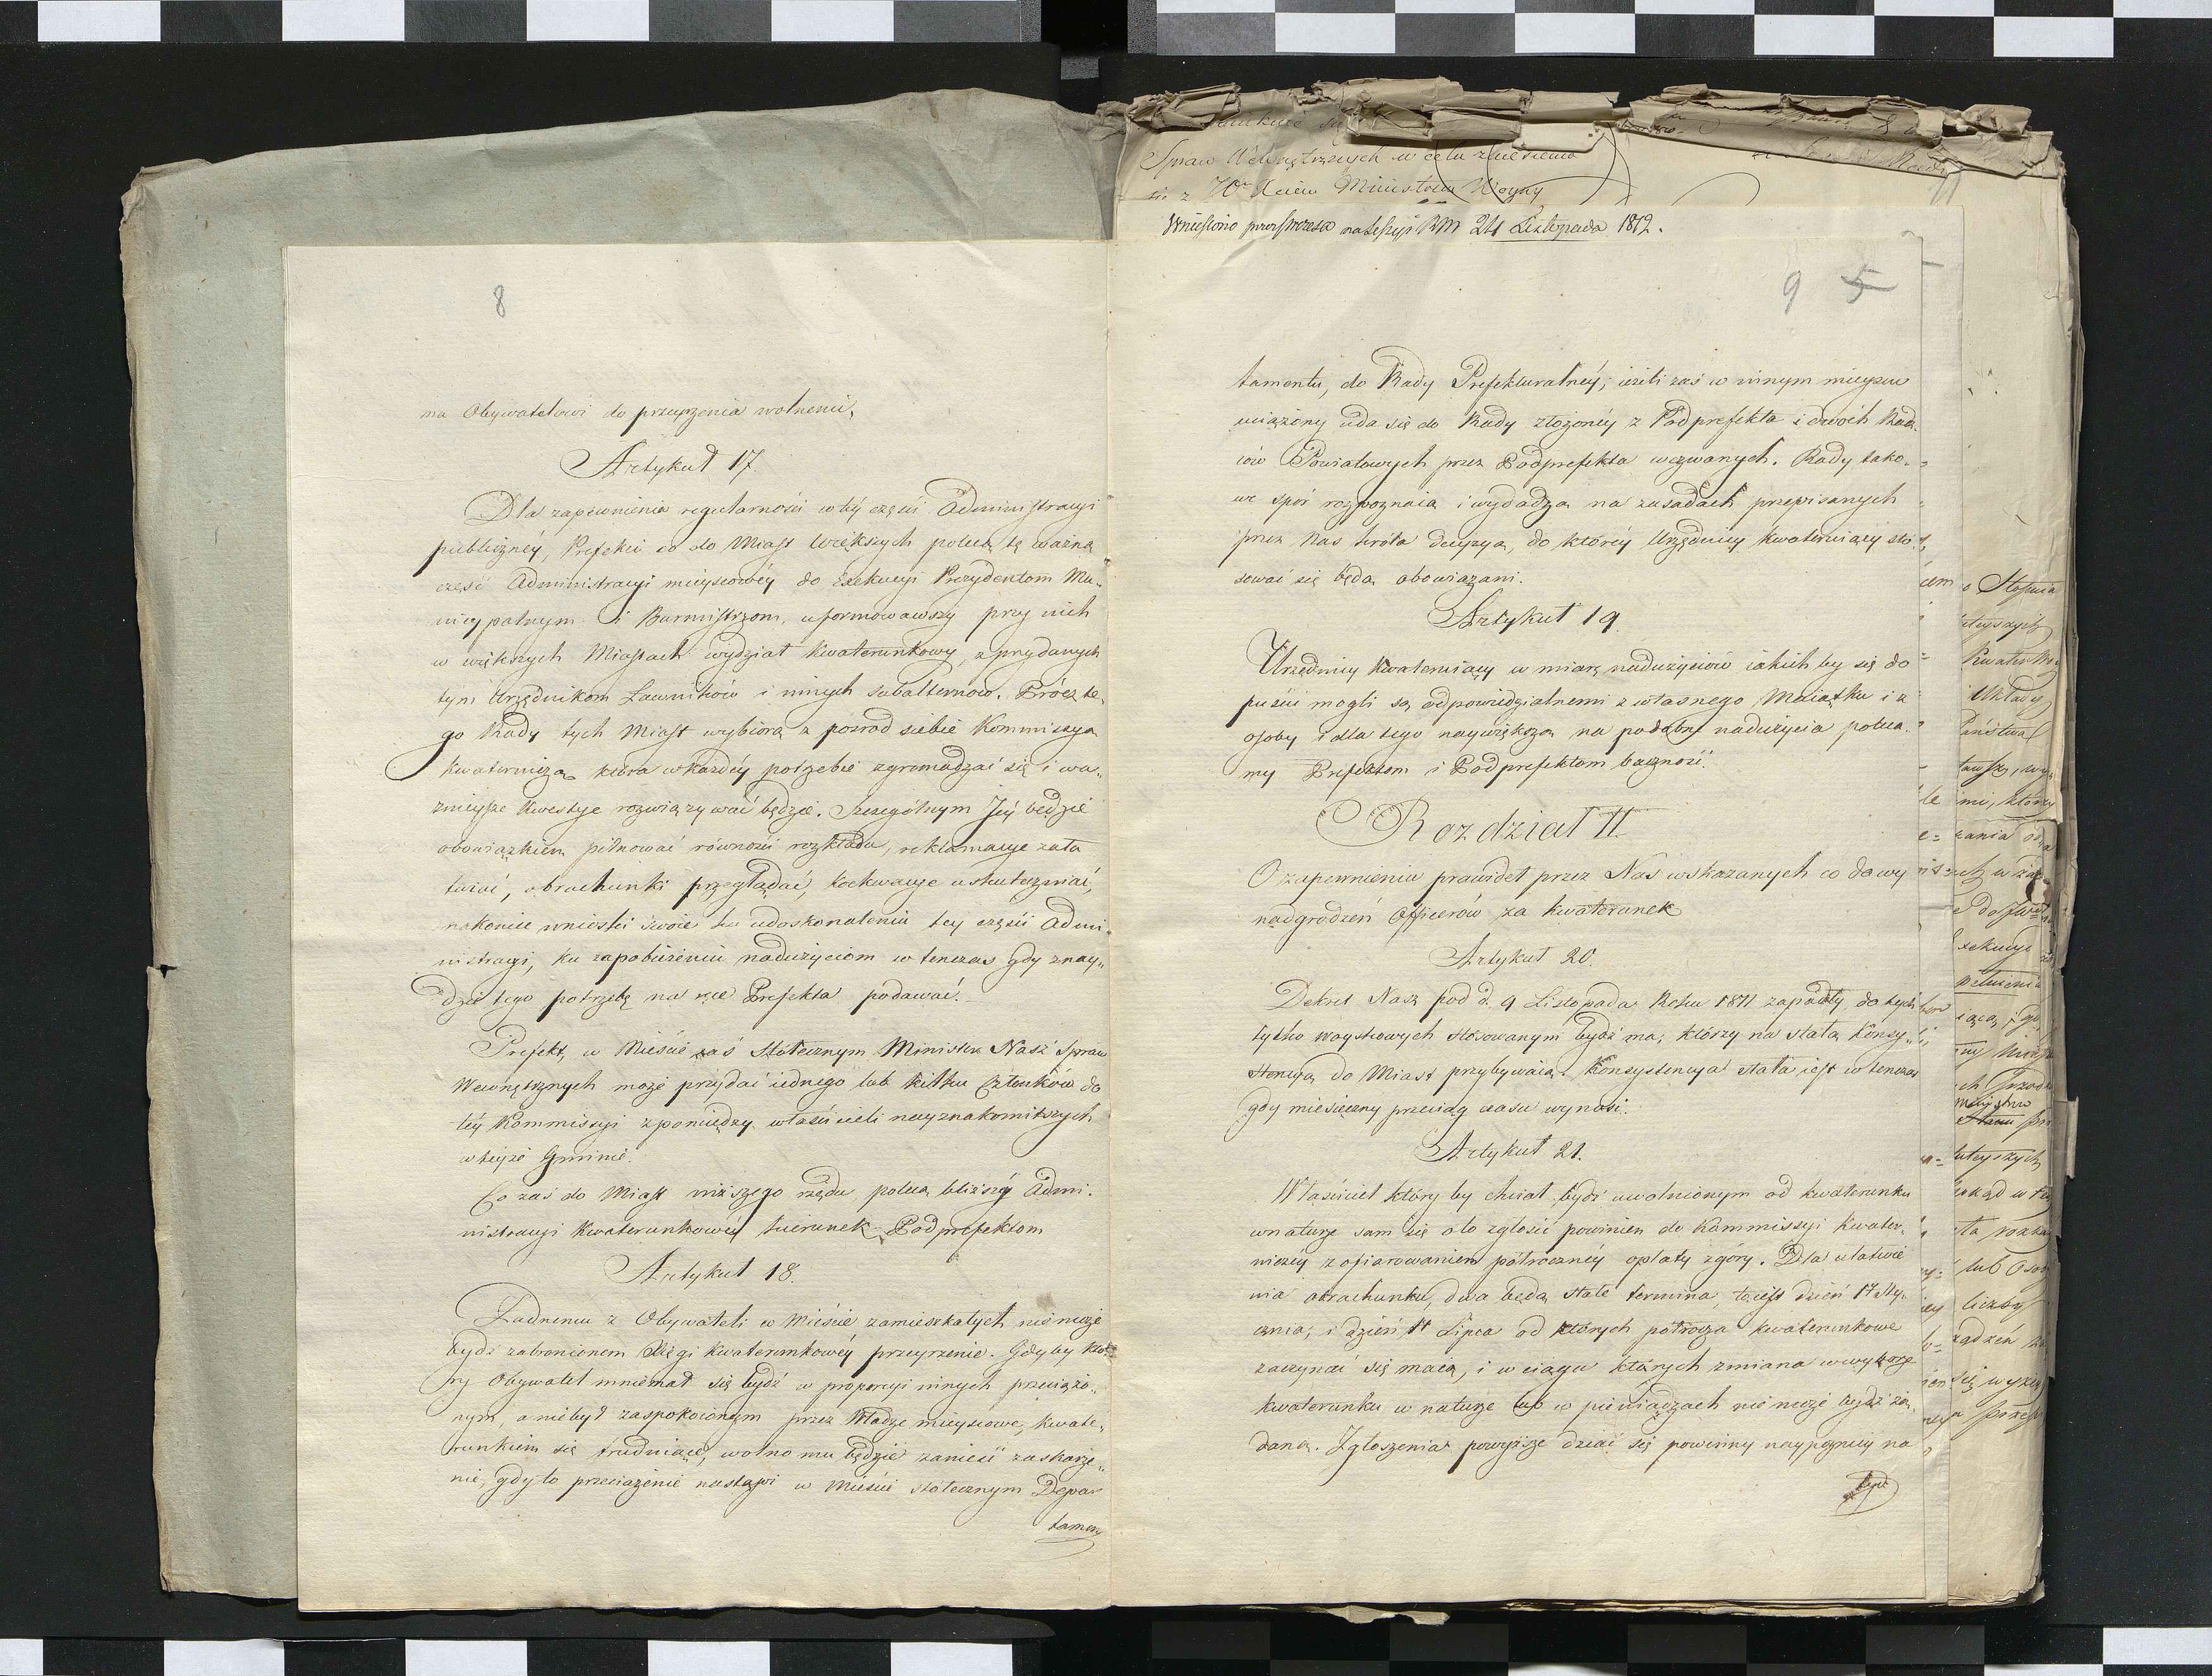 8
ma Obywatelowi do przeyrzenia wolnemi,
Artykuł 17.
Dla zapewnienia regularności w téy części Administracyi
publicznéy, Prefekci co do Miast większych polecą tę ważną
część Administracyi mieyscowéy do Exekucyi Prezydentom Mu„
nicypalnym i Burmistrzom, uformowawszy przy nich
w większych Miastach wydział kwaterunkowy, z przydanych
tym Urzędnikom Ławników i innych subalternów. Prócz te„
go Rady tych Miast wybiorą z pośrod siebie Kommissyą
kwaterniczą, która w każdéy potrzebie zgromadzać się i wa„
żnieysze kwestye rozwiązywać będzie. Szczególnym Jéy będzie
obowiązkiem pilnować równości rozkładu, reklamacye zała
twiać, obrachunki przeglądać, uskuteczniać,
nakoniec wnioski swoie ku udoskonaleniu tey części Admi„
nistracyi, ku zapobieżeniu nadużyciom w tenczas gdy znay„
dzie tego potrzebę na ręce Prefekta podawać.
Prefekt, w Mieście zaś Stołecznym Minister Nasz Spraw
Wewnętrznych może przydać iednego lub kilku Członków do
téy Kommissyi z pomiędzy właścicieli nayznakomitszych
w teyże Gminie.
Co zaś do Miast niższego rzędu polecą bliższy Admi.
nistracyi kwaterunkowéy kierunek Podprefektom
Artykuł 18.
Żadnemu z Obywateli w Mieście zamieszkałych nie może
bydź zabronionem Xięgi kwaterunkowéy przeyrzenie. Gdyby któ„
ry Obywatel mniemał się bydź w proporcyi innych przeciążo„
nym, a niebył zaspokoionym przez Władze mieyscowe, kwate„
runkiem się trudniące, wolno mu będzie zanieść zaskarże„
nie, gdy to przeciążenie nastąpi w Mieście stołecznym Depar
tamen
Spraw Wewnętrznych w celu zniesienia
się z JO Xciem Ministrem Woyny
Wniesiono przez Prezesa na Sessyi RM 24 Listopada 1812.
9 5
tamentu, do Rady Prefekturalnéy; ieżeli zaś w innym mieyscu
uciążony uda się do Rady złożonéy z Podprefekta i dwóch Rad„
ców Powiatowych przez Podprefekta wezwanych. Rady tako„
we spór rozpoznaią i wydadzą na zasadach przepisanych
przez Nas króta decyzyą, do któréy Urzędnicy kwaterniący sto„
sować się będą obowiązani.
Artykuł 19.
Urzędnicy kwaterniący w miarę nadużyciów iakich by się do
puścić mogli są odpowiedzialnemi z własnego Maiątku i z
osoby i dla tego naywiększą na podobne nadużycia poleca„
my Prefektom i Podprefektom baczność.
Rozdział II
O zapewnieniu prawideł przez Nas wskazanych co do wy
nadgrodzeń Officerów za kwaterunek
Artykuł 20.
Dekret Nasz pod d. 9 Listopada Roku 1811 zapadły do tych
tylko woyskowych stosowanym bydź ma, którzy na stałą konsy„
stencyą do Miast przybywaią. Konsystencya stała iest w tenczas
gdy miesięczny przeciąg czasu wynosi.
Artykuł 21.
Właściciel który by chciał bydź uwolnionym od kwaterunku
w naturze sam się o to zgłosić powinien do Kommissyi kwater„
niczéy z ofiarowaniem półrocznéy opłaty zgóry. Dla ułatwie
nia obrachunku, dwa będą stałe termina, to iest dzień 1 Sty„
cznia, i dzień 1 Lipca od których półrocza kwaterunkowe
zaczynać się maią, i w ciągu których zmiana w wyborze
kwaterunku w naturze lub w pieniądzach nie może bydź żą„
daną. Zgłoszenia powyższe dziać się powinny naypoźniéy na